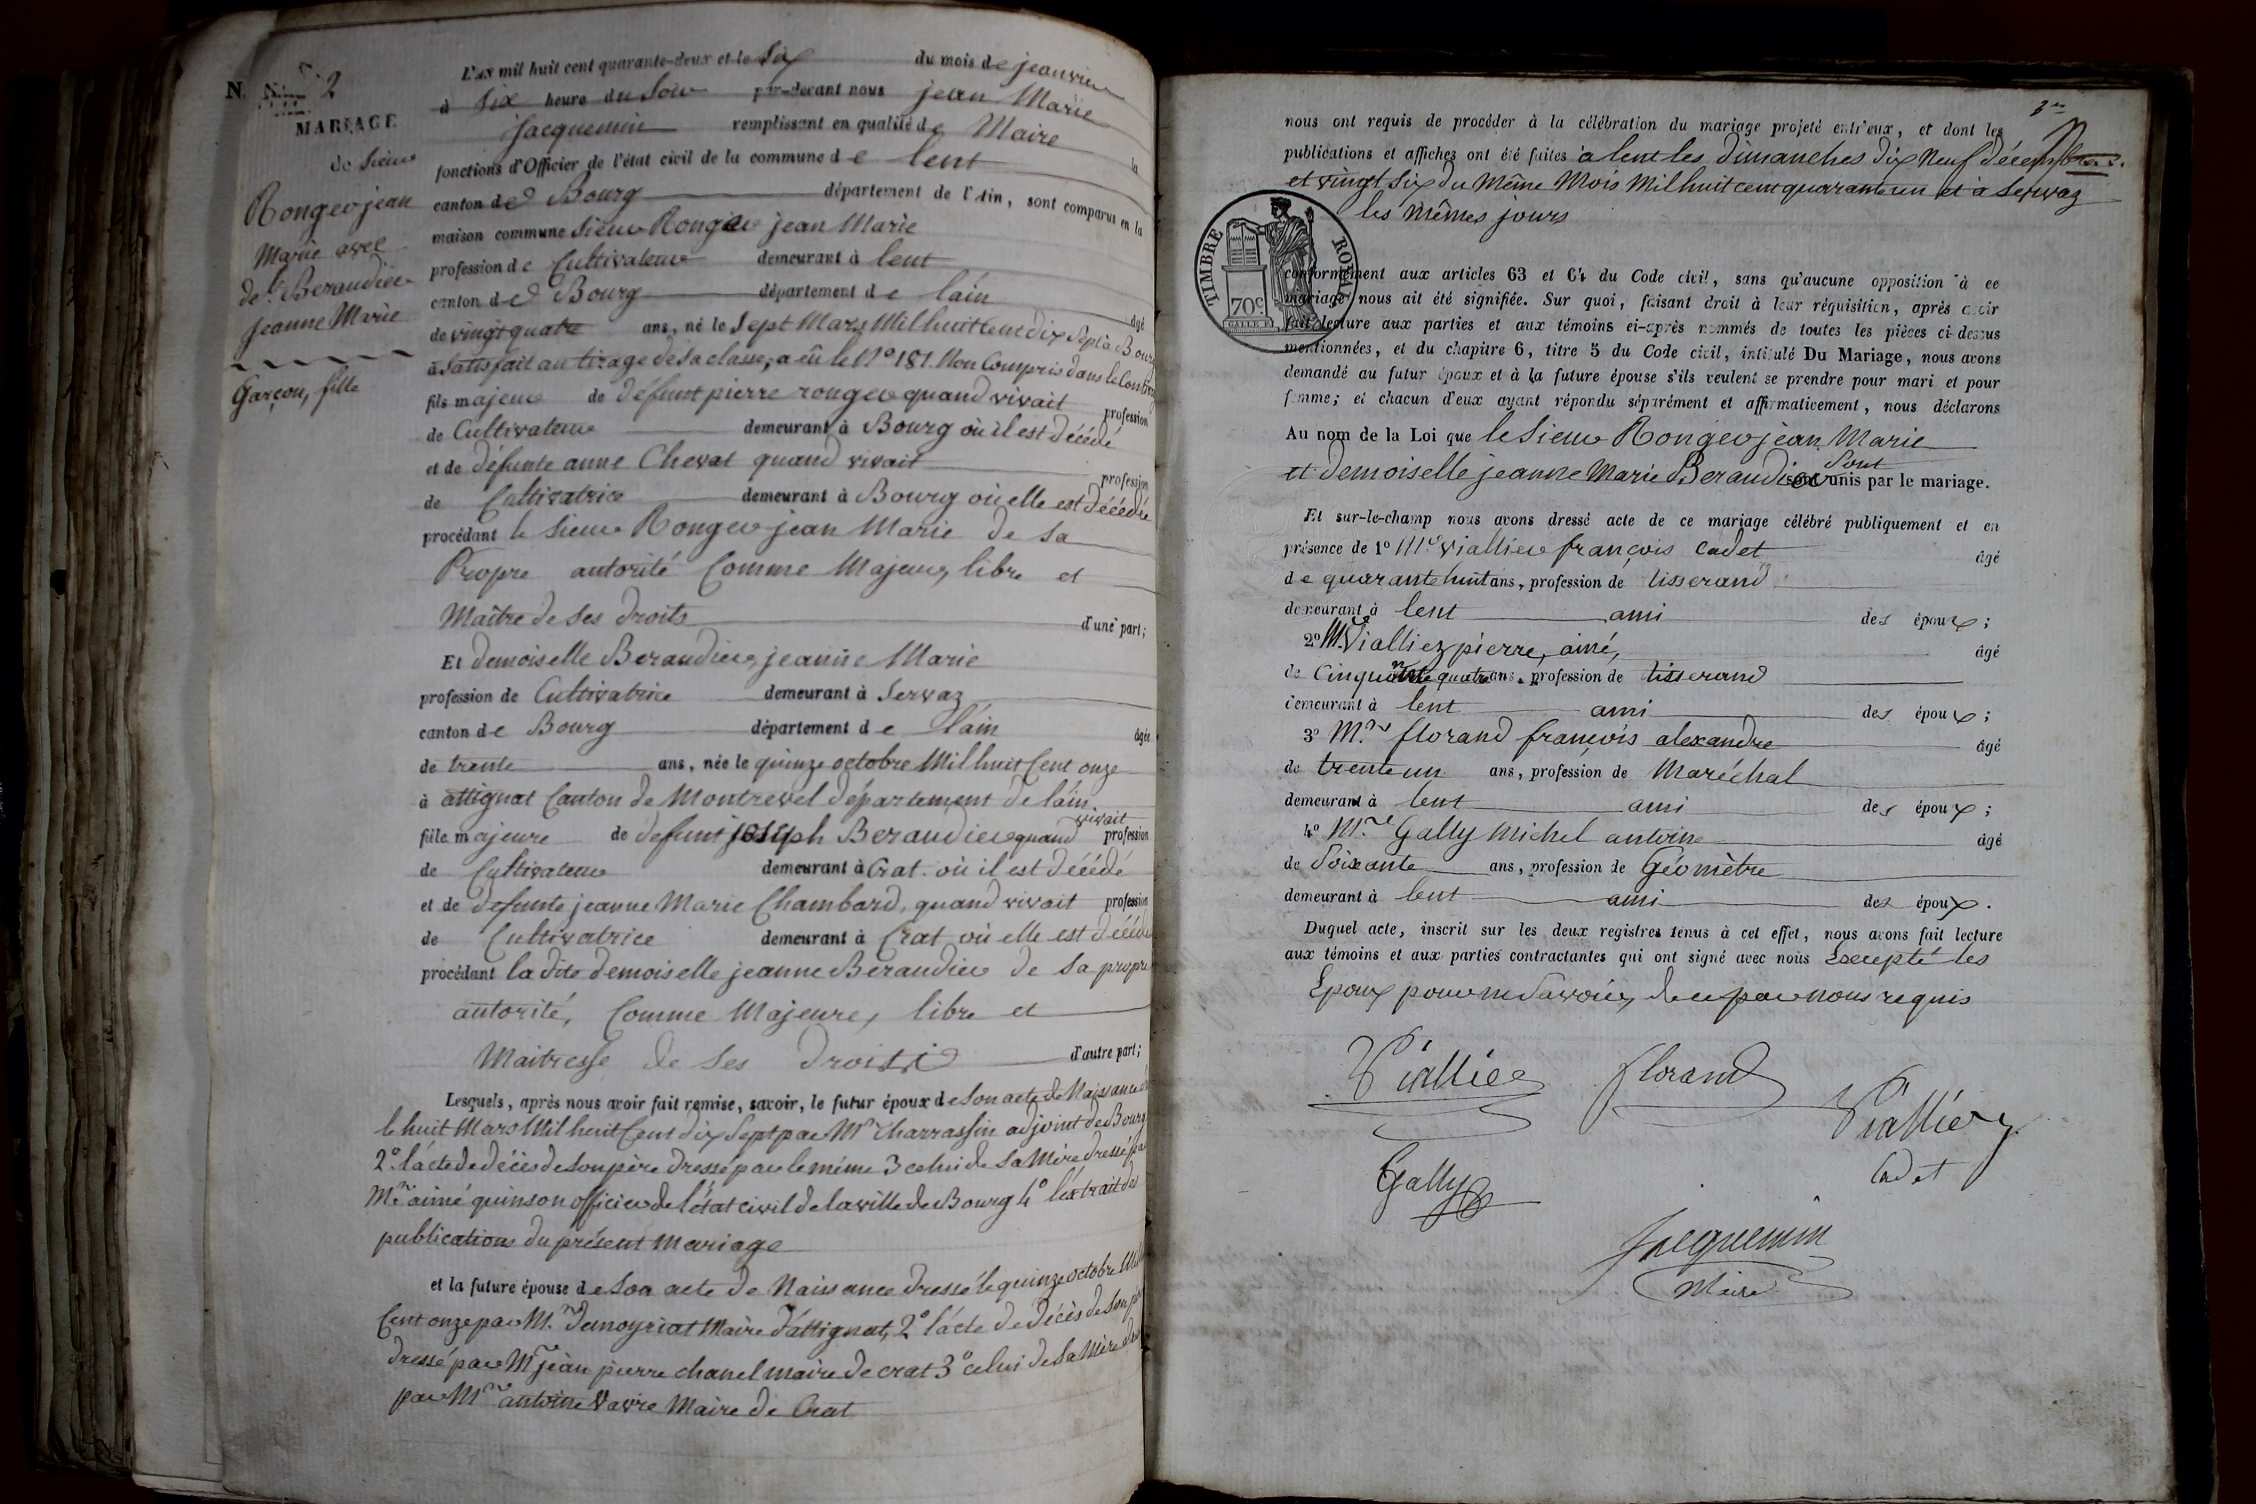 N. N.º 2
MARIAGE
de Sieur
Rongev jean
Marie avec
de.lle Beraudier
jeanne Marie
Garçon, fille
L'AN mil huit cent quarante-deux et le Six du mois de jeanvier
à Six heure du Soir par-devant nous jean Marie
Jacquemin remplissant en qualité de Maire la
fonctions d'Officier de l'état civil de la commune de lent
canton de Bourg département de l'Ain, sont comparus en la
maison commune Sieur Rongev jean Marie
profession de Cultivateur demeurant à lent
canton de Bourg département de lain âgé
de vingt quatre ans, né le Sept Mars Mil huit Cent dix Sept à Bourg
a Satisfait au tirage de Sa classe, a eû le N.º 181. Non Compris dans le Conting
fils majeur de défunt pierre rongev quand vivait profession
de Cultivateur demeurant à Bourg où il est décédé
et de défunte anne Chevat quand vivait profession
de Cultivatrice demeurant à Bourg où elle est décédée
procédant le Sieur Rongev jean Marie de Sa
Propre autorité Comme Majeur, libre et
Maître de Ses droits d'une part;
Et demoiselle Beraudier, jeanne Marie
profession de Cultivatrice demeurant à Servaz
canton de Bourg département de láin âgée
de trente ans, née le quinze octobre Mil huit Cent onze
à attignat Canton de Montrevel département de láin
vivait
fille majeure de defunt joseph Beraudier quand profession
de Cultivateur demeurant à Crat. où il est décédé
et de defunte jeanne Marie Chambard, quand vivait profession
de Cultivatrice demeurant à Crat où elle est décédé
procédant la dite demoiselle jeanne Beraudier de Sa propre
autorité, Comme Majeure, libre et
Maitresse de Ses droits d'autre part;
Lesquels, après nous avoir fait remise, savoir, le futur époux de Son acte de Naissance
le huit Mars Mil huit Cent dix Sept par Mr Charrassin adjoint de Bourg
2º. lácte de décès de Son père dressé par le même 3 celui de Sa Mère dressé par
Mr. aimé quinson officier de l'état civil de la ville de Bourg 4º léxtrait des
publications du présent Mariage
et la future épouse de Son acte de Naissance dressé le quinze octobre Mil
Cent onze par M.r demoyriat Maire d'attignat, 2º lácte de décès de Son père
dressé par Mr jean pierre chanel maire de crat 3º celui de Sa Mère
par Mr antoine Vavre Maire de Crat
nous ont requis de procéder à la célébration du mariage projeté entr'eux, et dont les
publications et affiches ont été faites à lent les dimanches dix Neuf décembre
et vingt Six du Même Mois Mil huit cent quarante un et à Servaz
les Mêmes jours
TIMBRE ROYAL
70c
conformément aux articles 63 et 64 du Code civil, sans qu'aucune opposition à ce
mariage nous ait été signifiée. Sur quoi, faisant droit à leur réquisition, après avoir
fait lecture aux parties et aux témoins ci-après nommés de toutes les pièces ci-dessus
mentionnées, et du chapitre 6, titre 5 du Code civil, intitulé Du Mariage, nous avons
demandé au futur époux et à la future épouse s'ils veulent se prendre pour mari et pour
femme; et chacun d'eux ayant répondu séparément et affirmativement, nous déclarons
Au nom de la Loi que le Sieur Rongev jean Marie
Sont
et demoiselle jeanne Marie Beraudier sont unis par le mariage.
Et sur-le-champ nous avons dressé acte de ce mariage célébré publiquement et en
présence de 1º Mr Viallier françois cadet âgé
de quarante huit ans, profession de tisserand
demeurant à lent ami des époux;
2º Mr Vialliez pierre, ainé, âgé
de Cinquante quatre ans, profession de tisserand
demeurant à lent ami des époux;
3º M.r florand françois alexandre âgé
de trente un ans, profession de Maréchal
demeurant à lent ami des époux;
4º M.r Gally Michel antoine âgé
de Soixante ans, profession de Géomètre
demeurant à lent ami des époux.
Duquel acte, inscrit sur les deux registres tenus à cet effet, nous avons fait lecture
aux témoins et aux parties contractantes qui ont signé avec nous Excepté les
Epoux pour ne Savoir, de ce par nous requis
Viallier florand
Viallier
Cadet
Gally
Jacquemin
Maire